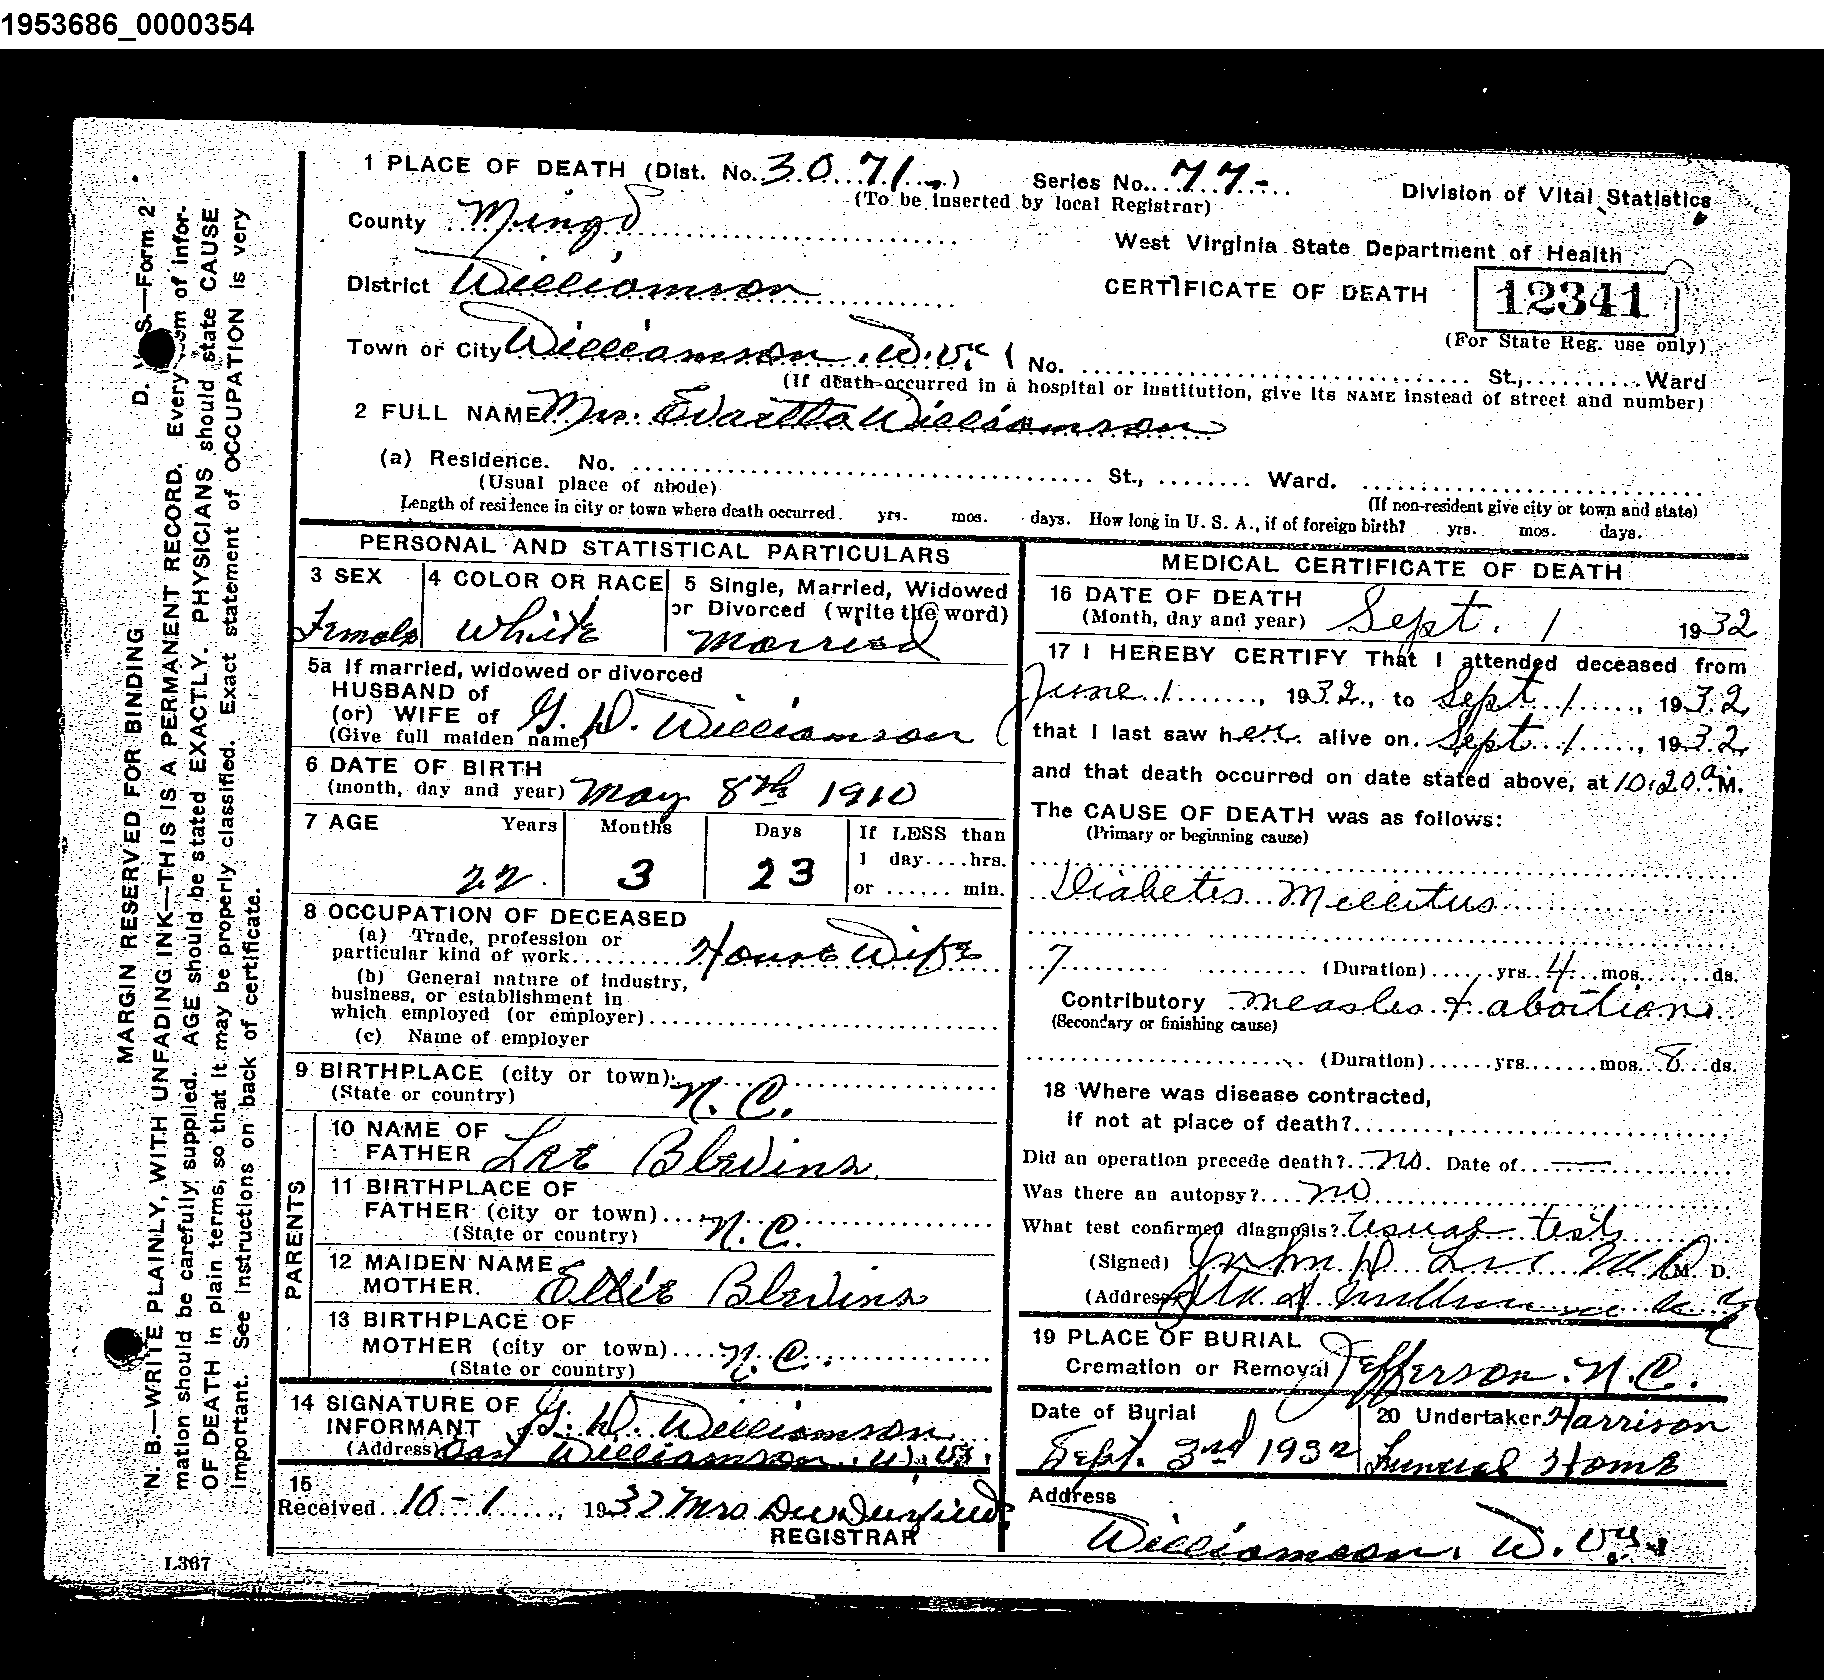 1953686_0000354
1 PLACE OF DEATH (Dist. No. 3071.) Series No. 77- Division of Vital Statistics
(To be inserted by local Registrar)
County Mingo
West Virginia State Department of Health
District Williamson
CERTIFICATE OF DEATH 12341
(For State Reg. use only)
Town or City Williamson. W. Va. No. St., Ward
(If death occurred in a hospital or institution, give its NAME instead of street and number)
2 FULL NAME Mrs. Evartta Williamson
(a) Residence. No. St., Ward.
(Usual place of abode) (If non-resident give city or town and state)
Length of residence in city or town where death occurred. yrs. mos. days. How long in U. S. A., if of foreign birth? yrs. mos. days.
PERSONAL AND STATISTICAL PARTICULARS
3 SEX 4 COLOR OR RACE 5 Single, Married, Widowed
or Divorced (write the word)
Female White Married
5a If married, widowed or divorced
HUSBAND of
(or) WIFE of G. D. Williamson
(Give full maiden name)
6 DATE OF BIRTH
(month, day and year) May 8th 1910
7 AGE Years Months Days If LESS than
1 day....hrs.
22 3 23
or ...... min.
8 OCCUPATION OF DECEASED
(a) Trade, profession or
particular kind of work House Wife
(b) General nature of industry,
business, or establishment in
which employed (or employer)
(c) Name of employer
9 BIRTHPLACE (city or town)
(State or country) N. C.
PARENTS
10 NAME OF
FATHER Lee Blevins
11 BIRTHPLACE OF
FATHER (city or town)
(State or country) N. C.
12 MAIDEN NAME
MOTHER. Ellie Blevins
13 BIRTHPLACE OF
MOTHER (city or town)
(State or country) N. C.
14 SIGNATURE OF
INFORMANT G. D. Williamson
(Address) East Williamson. W. Va.
15
Received 10-1, 1932 Mrs
REGISTRAR
MEDICAL CERTIFICATE OF DEATH
16 DATE OF DEATH
(Month, day and year) Sept. 1 1932
17 I HEREBY CERTIFY That I attended deceased from
June 1, 1932, to Sept 1, 1932
that I last saw her alive on Sept 1, 1932
and that death occurred on date stated above, at 10:20 a M.
The CAUSE OF DEATH was as follows:
(Primary or beginning cause)
Diabetes Mellitus
7 (Duration) yrs. 4 mos. ds.
Contributory measles & abortion
(Secondary or finishing cause)
(Duration) yrs. mos. 8 ds.
18 Where was disease contracted,
if not at place of death?
Did an operation precede death? no. Date of —
Was there an autopsy? no
What test confirmed diagnosis? usual tests
(Signed) John D. M. D.
(Address)
19 PLACE OF BURIAL
Cremation or Removal Jefferson. N. C.
Date of Burial 20 Undertaker Harrison
Sept. 3rd 1932 Funeral Home
Address
Williamson. W. Va.
D. V. S.—Form 2
MARGIN RESERVED FOR BINDING
N. B.—WRITE PLAINLY, WITH UNFADING INK—THIS IS A PERMANENT RECORD. Every item of infor-
mation should be carefully supplied. AGE should be stated EXACTLY. PHYSICIANS should state CAUSE
OF DEATH in plain terms, so that it may be properly classified. Exact statement of OCCUPATION is very
important. See instructions on back of certificate.
L367